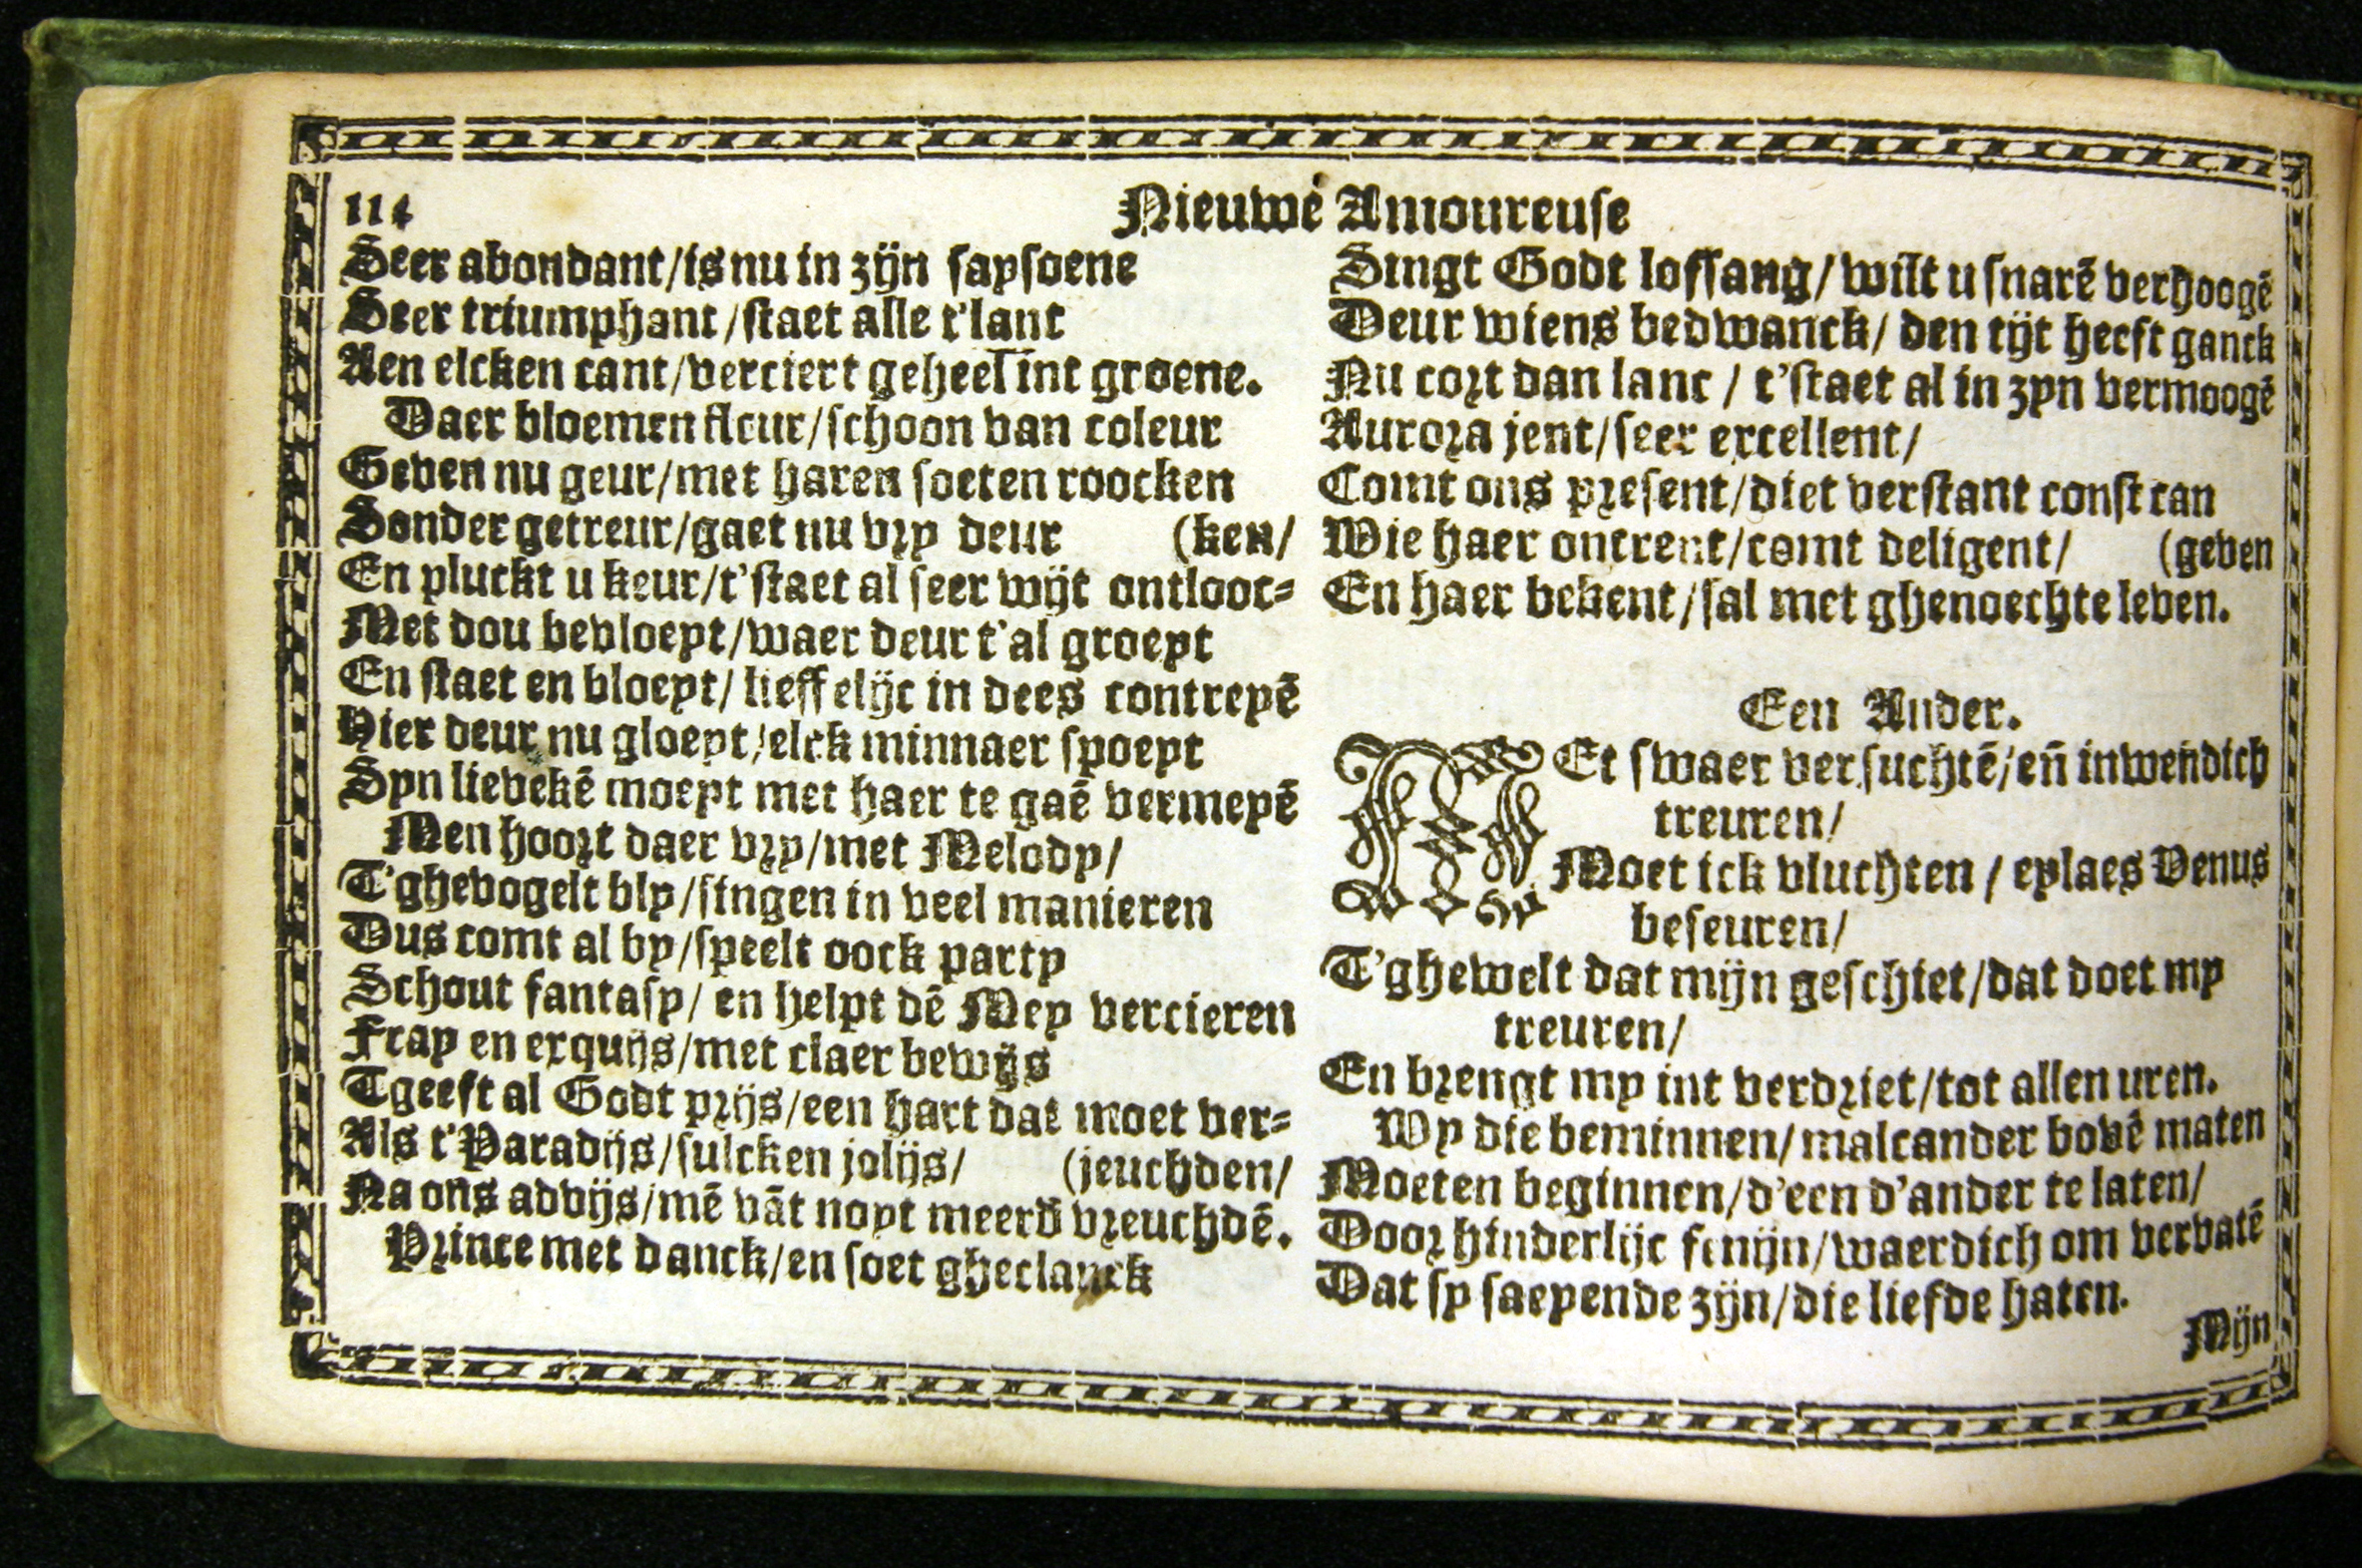 114
Nieuwe Amoureuse
Seer abondant/is nu in zijn saysoene
Seer triumphant/staet alle t'lant
Aen elcken cant/verciert geheel int groene.
Daer bloemen fleur/schoon van coleur
Geven nu geur/met haren soeten roocken
Sonder getreur/gaet nu vry deur (ken/
En pluckt u keur/t'staet al seer wijt ontlooc-
Met dou bevloeyt/waer deur t'al groeyt
En staet en bloeyt/lieffelijc in dees contreyē
Hier deur nu gloeyt/elck minnaer spoeyt
Syn lievekē moeyt met haer te gaē vermeyē
Men hoort daer vry/met Melody/
T'ghevogelt bly/singen in veel manieren
Dus comt al by/speelt oock party
Schout fantasy/ en helpt dē Mey vercieren
Fray en exquijs/met claer bewijs
Tgeeft al Godt prijs/een hart dat moet ver-
Als t'Paradijs/sulcken jolijs/ (jeuchden/
Na ons advijs/mē vāt noyt meerd̄ vreuchdē.
Prince met danck/en soet gheclanck
Singt Godt loffsang/wilt u snarē verhoogē
Deur wiens bedwanck/ den tijt heeft ganck
Nu cort dan lanc / t'staet al in zyn vermoogē
Aurora jent/seer excellent/
Comt ons present/diet verstant const can
Wie haer ontrent/comt deligent/ (geven
En haer bekent/sal met ghenoechte leven.
Een Ander.
MEt swaer versuchtē/en̄ inwendich
treuren/
Moet ick vluchten / eylaes Venus
beseuren/
T'ghewelt dat mijn geschiet/dat doet my
treuren/
En brengt my int verdriet/tot allen uren.
Wy die beminnen/malcander bovē maten
Moeten beginnen/d'een d'ander te laten/
Door hinderlijc fenijn/waerdich om vervatē
Dat sy saeyende zijn/die liefde haten.
Mijn